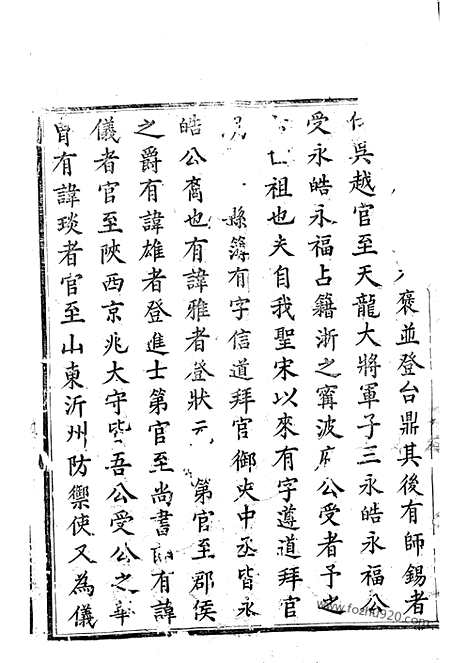 褒並登台鼎其後有師錫者
吳越官至天龍大將軍子三永皓永福公
受永皓永福占籍浙之寧波 公受者子
祖也夫自我聖宋以來有字遵道拜官
縣簿有字信道拜官御史中丞皆永
皓公裔也有諱雅者登狀元 第官至郡侯
之爵有諱雄者登進士第官至尚書 有諱
儀者官至陜西京兆大守皆吾公受公之
有諱琰者官至山東沂州防禦使又為儀
www.fozhu920.com